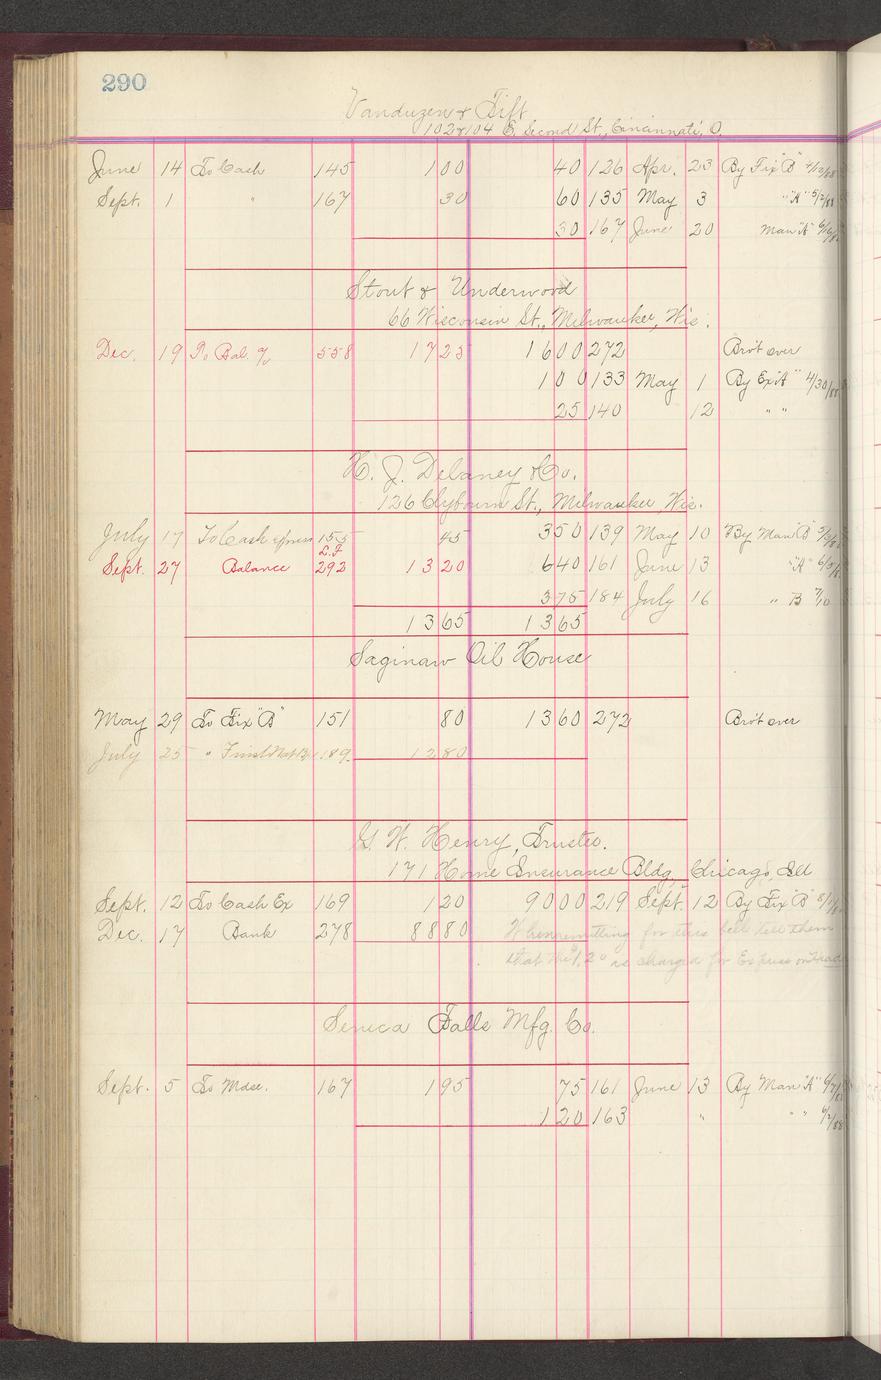 290
Vanduzen & Tift
102 & 104 E. Second St., Cincinnati, O.
June 14 To Cash 145 1 00 40 126 Apr. 23 By Fix "B"
Sept. 1 " 167 30 60 135 May 3 " "A" 5/2/88
30 167 June 20 Man "A"
Stout & Underwood
66 Wisconsin St., Milwaukee, Wis.
Dec. 19 To Bal. % 558 17 25 16 00 272 Bro't over
1 00 133 May 1 By Ex "A" 4/30/88
25 140 12 " "
H. J. Delaney & Co.
126 Clybourn St., Milwaukee, Wis.
July 17 To Cash express 155 45 3 50 139 May 10 By Man "B"
L.F
Sept. 27 Balance 292 13 20 6 40 161 June 13 "A"
3 75 184 July 16 " B 7/10
13 65 13 65
Saginaw Oil House
May 29 To Fix "B" 151 80 13 60 272 Bro't over
July 25 " First Nat Bk 189 12 80
G. W. Henry, Trustee.
171 Home Insurance Bldg, Chicago, Ill
Sept. 12 To Cash Ex 169 1 20 90 00 219 Sept. 12 By Fix "B"
Dec. 17 Bank 278 88 80 When remitting for this bill tell them
that the 1,20 is charged for Express on
Seneca Falls Mfg. Co.
Sept. 5 To Mdse. 167 1 95 75 161 June 13 By Man "A"
1 20 163 " " "